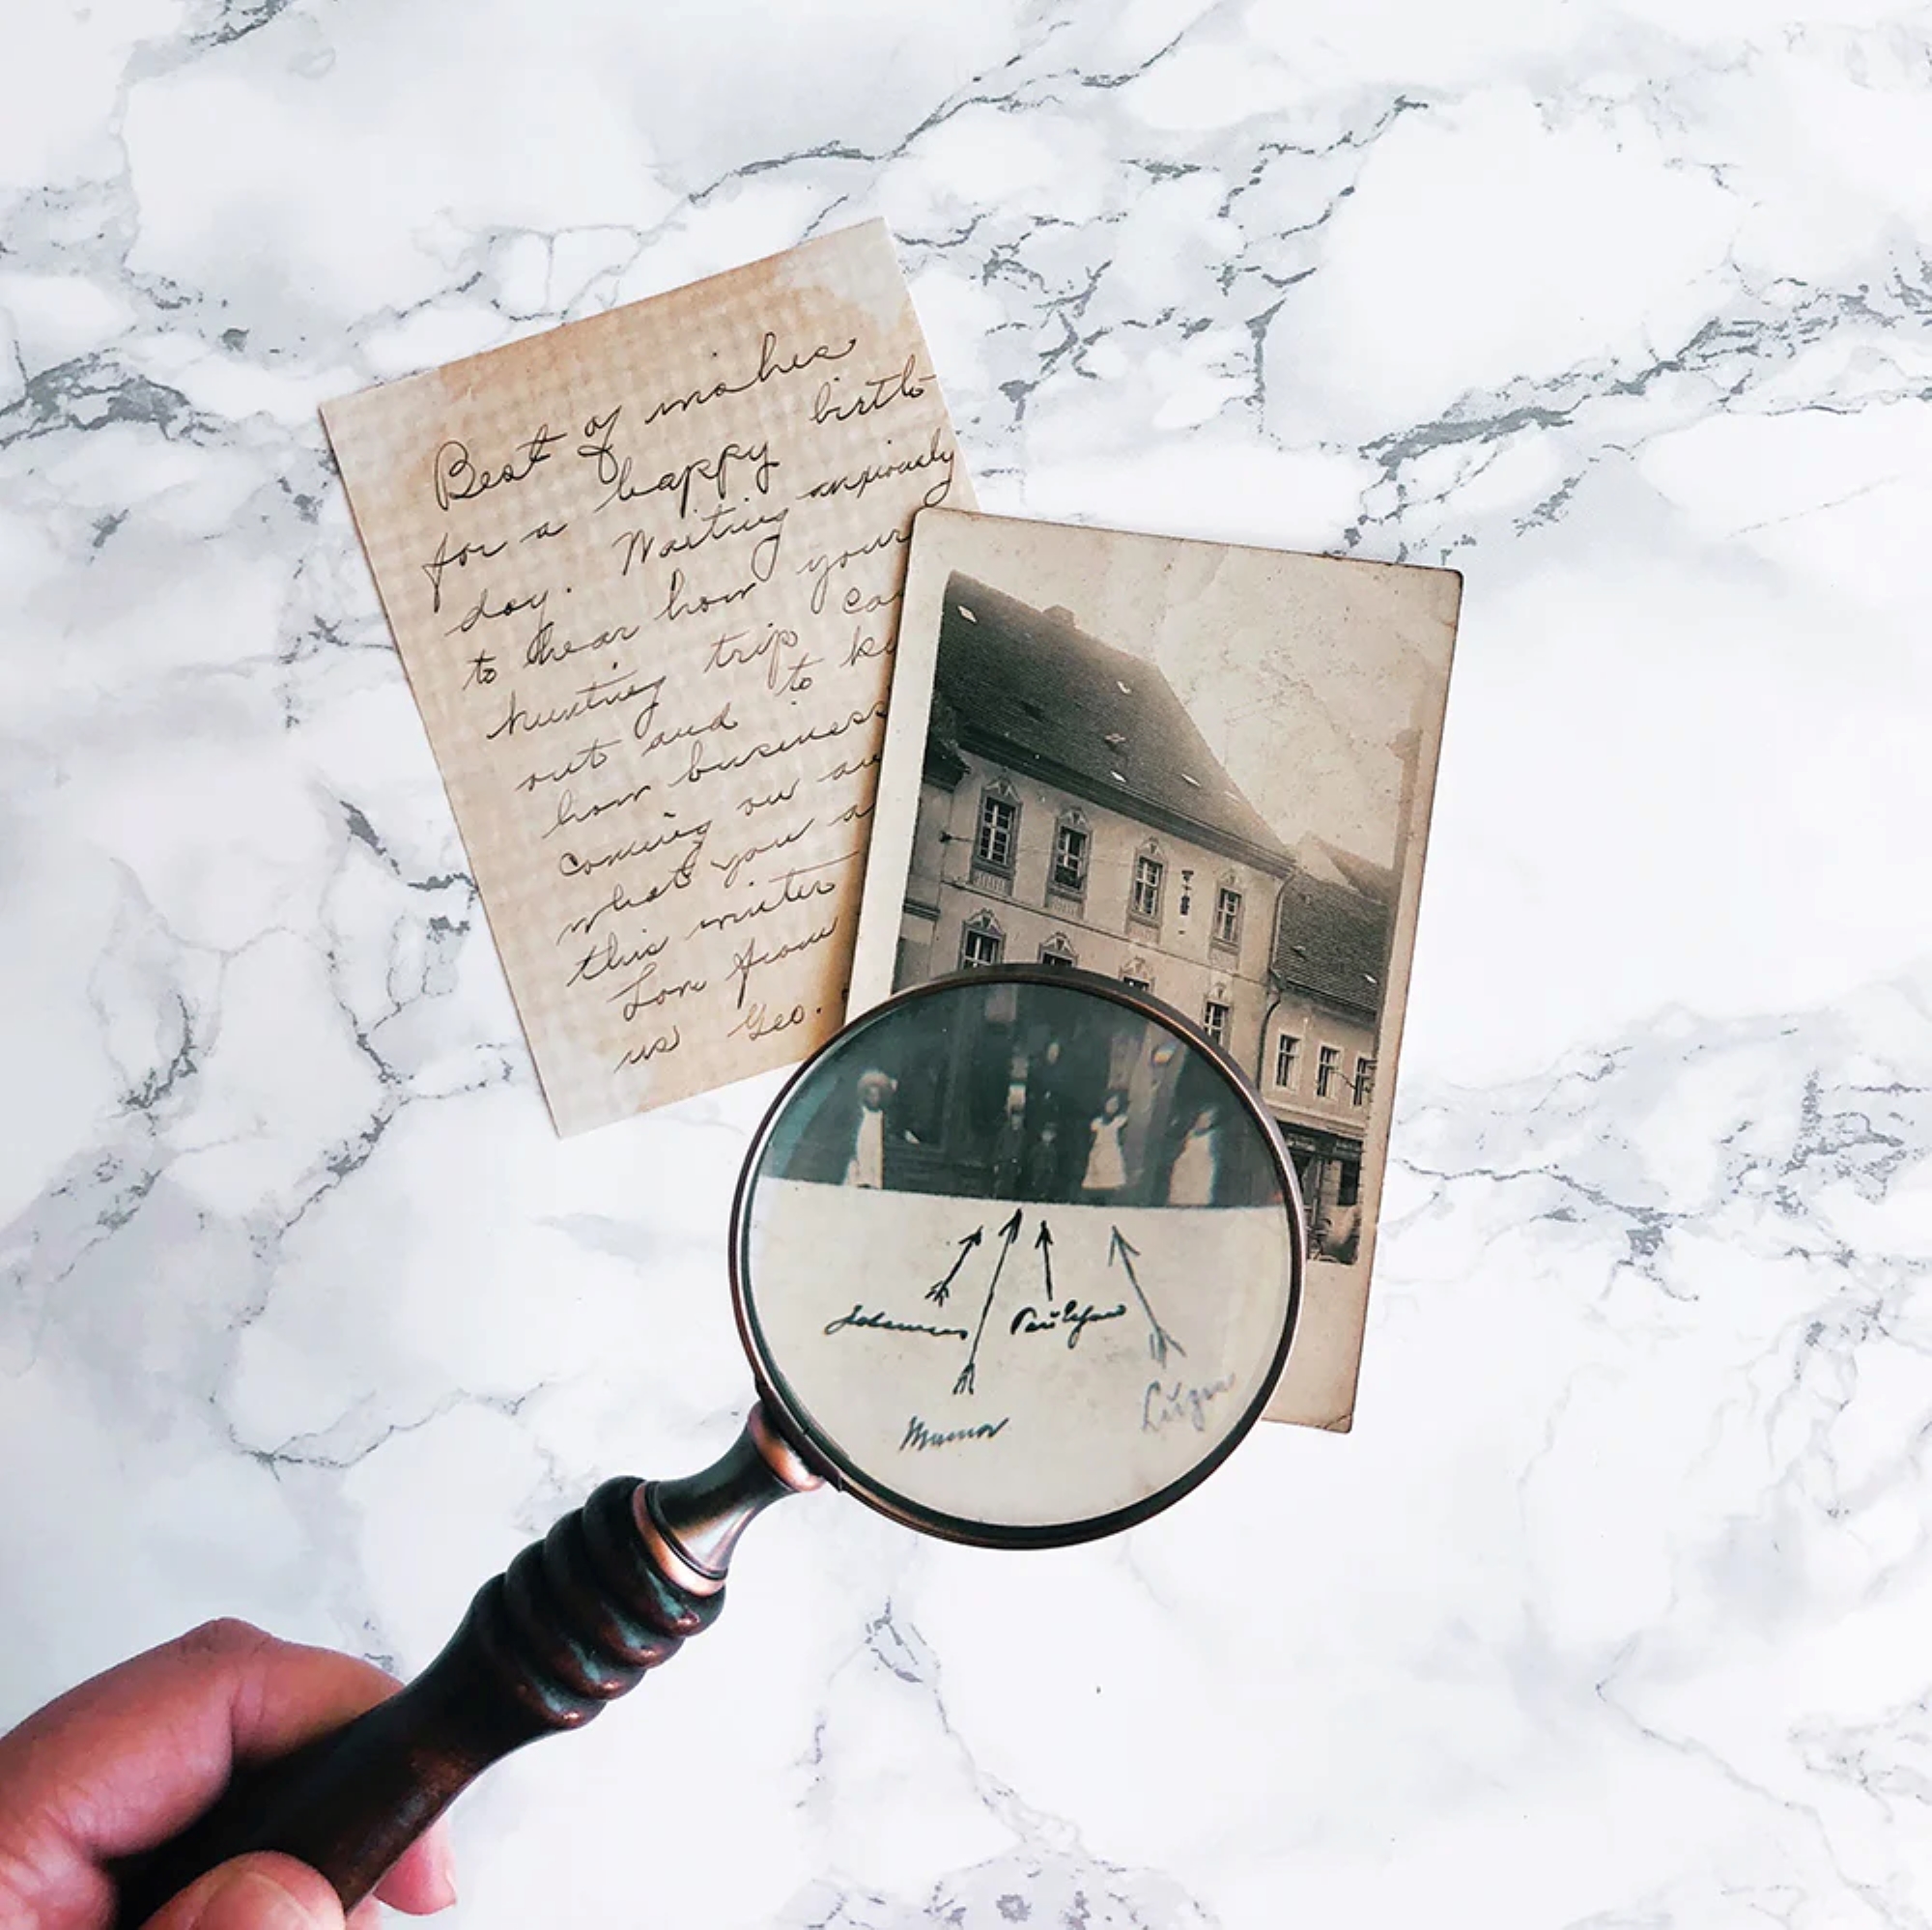 Best of wishes
for a happy birth
day. Waiting anxiously
to hear how your
hunting trip ca
out and to k
how business
coming on an
what you a
this winter
Love from
us Geo.
Johannes